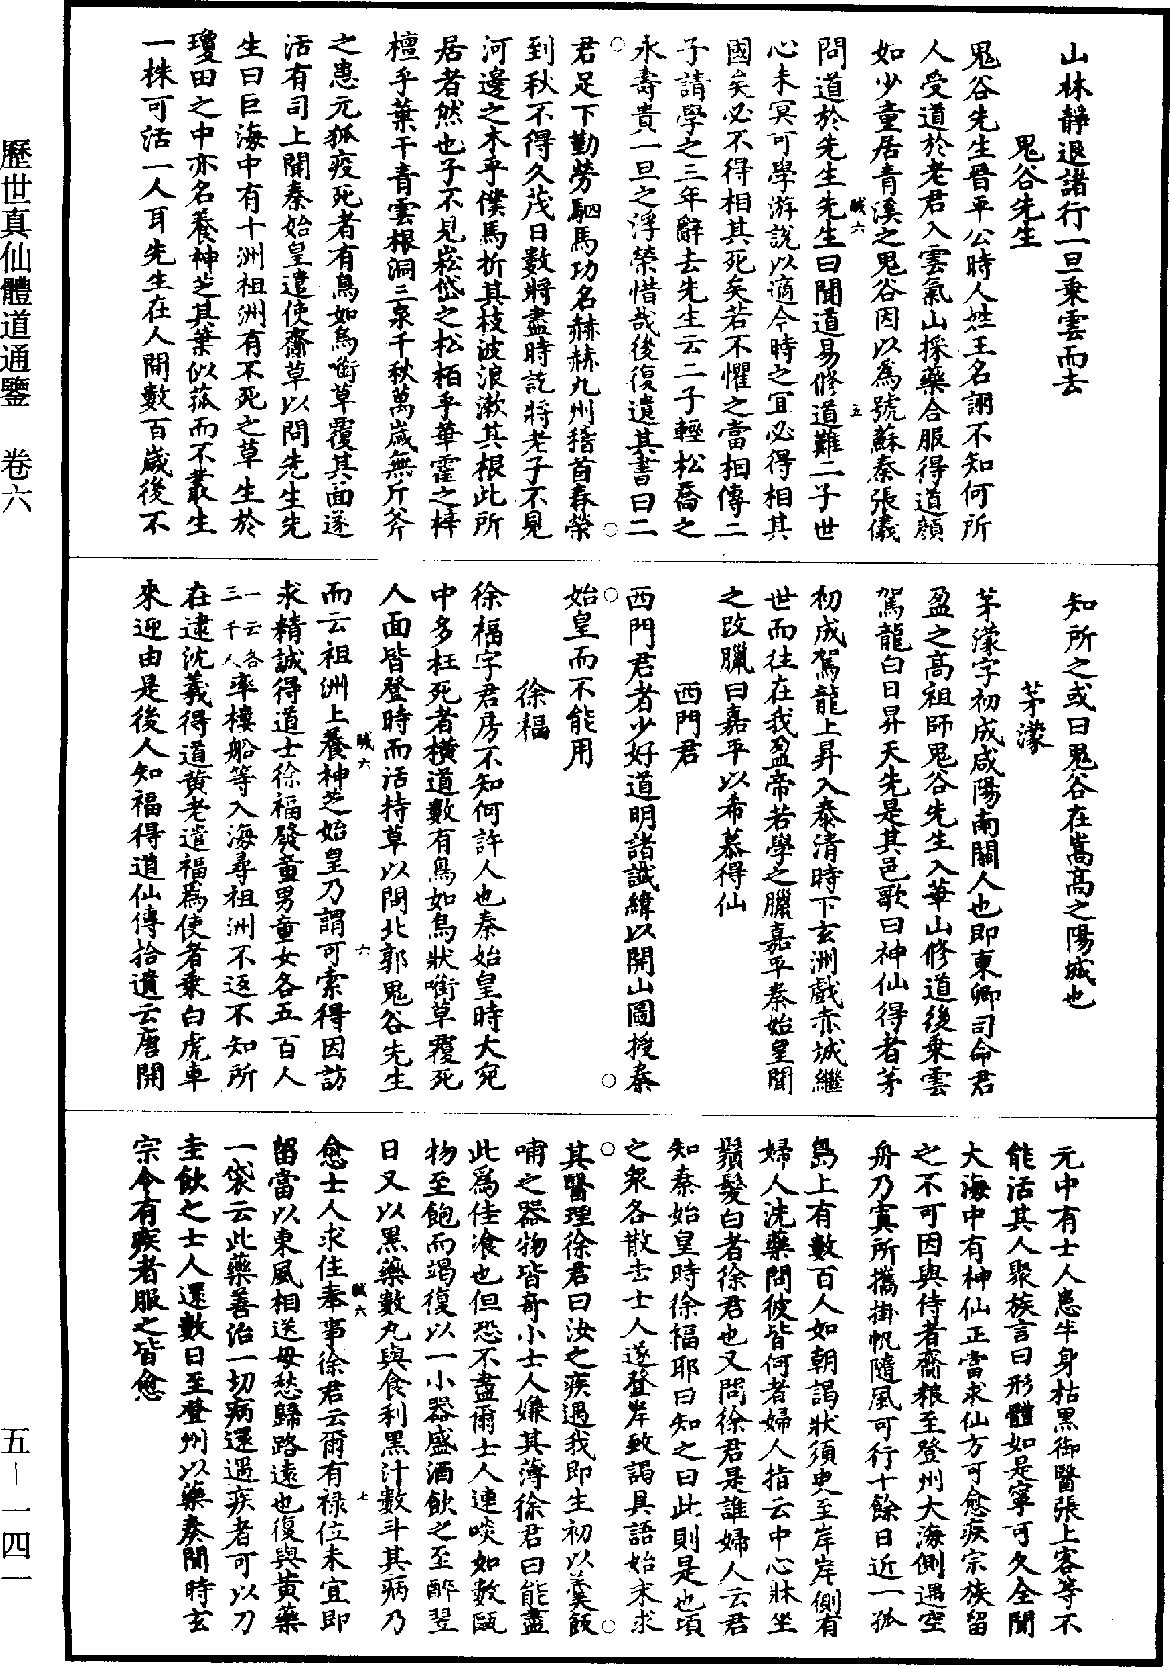 山林辭退諸行一旦乘雲而去
鬼谷先生
鬼谷先生晉平公時人姓王名詡不知何所
人受道於老君入雲氣山採藥合服得道顏
如少童居青溪之鬼谷因以為號蘇秦張儀
問道於先生先生曰聞道易修道難二子世
心未冥可學游說以適今時之宜必得相其
國矣必不得相其死矣若不懼之當相傳二
子請學之三年辭去先生云二子輕松喬之
永壽貴一旦之浮榮惜哉後復遺其書曰二
君足下勤勞駟馬功名赫赫九州稽首春榮
到秋不得久茂日數將盡時訖將老子不見
河邊之木乎僕馬折其枝波浪漱其根此所
居者然也子不見崧岱之松栢乎華霍之梓
檀乎葉干青雲根洞三泉千秋萬歲無斤斧
之患元狐疫死者有鳥如烏啣草覆其面遂
活有司上聞秦始皇遣使齎草以問先生先
生曰巨海中有十洲祖洲有不死之草生於
瓊田之中亦名養神芝其葉似菰而不叢生
一株可活一人耳先生在人間數百歲後不
知所之或曰鬼谷在嵩高之陽城也
茅濛
茅濛字初成咸陽南關人也即東卿司命君
盈之高祖師鬼谷先生入華山修道後乘雲
駕龍白日昇天先是其邑歌曰神仙得者茅
初成駕龍上昇入泰清時下玄洲戲赤城繼
世而往在我盈帝若學之臘嘉平秦始皇聞
之改臘曰嘉平以希慕得仙
西門君
西門君者少好道明諸讖緯以開山圖授秦
始皇而不能用
徐福
徐福字君房不知何許人也秦始皇時大宛
中多枉死者橫道數有鳥如烏狀啣草覆死
人面皆登時而活持草以問北郭鬼谷先生
而云祖洲上養神芝始皇乃謂可索得因訪
求精誠得道士徐福發童男童女各五百人
一云各三千人率樓船等入海尋祖洲不返不知所
在逮沈羲得道黃老遣福為使者乘白虎車
來迎由是後人知福得道仙傳拾遺云唐開
元中有士人患半身枯黑御醫張上客等不
能活其人聚族言曰形體如是寧可久全聞
大海中有神仙正當求仙方可愈疾宗族留
之不可因與侍者齎粮至登州大海側遇空
舟乃寘所攜掛帆隨風可行十餘日近一孤
島上有數百人如朝謁狀須臾至岸岸側有
婦人洗藥問彼皆何者婦人指云中心牀坐
鬚髮白者徐君也又問徐君是誰婦人云君
知秦始皇時徐福耶曰知之曰此則是也頃
之衆各散去士人遂登岸致謁具語始末求
其醫理徐君曰汝之疾遇我即生初以羹飯
哺之器物皆奇小士人嫌其薄徐君曰能盡
此為佳飡也但恐不盡爾士人連啖如數甌
物至飽而竭復以一小器盛酒飲之至醉翌
日又以黑藥數丸與食利黑汁數斗其病乃
愈士人求住奉事徐君云爾有祿位未宜即
留當以東風相送毋愁歸路遠也復與黃藥
一袋云此藥善治一切病還遇疾者可以刀
圭飲之士人還數日至登州以藥奏聞時玄
宗令有疾者服之皆愈
歷世真仙體道通鑒 卷六
五—一四一